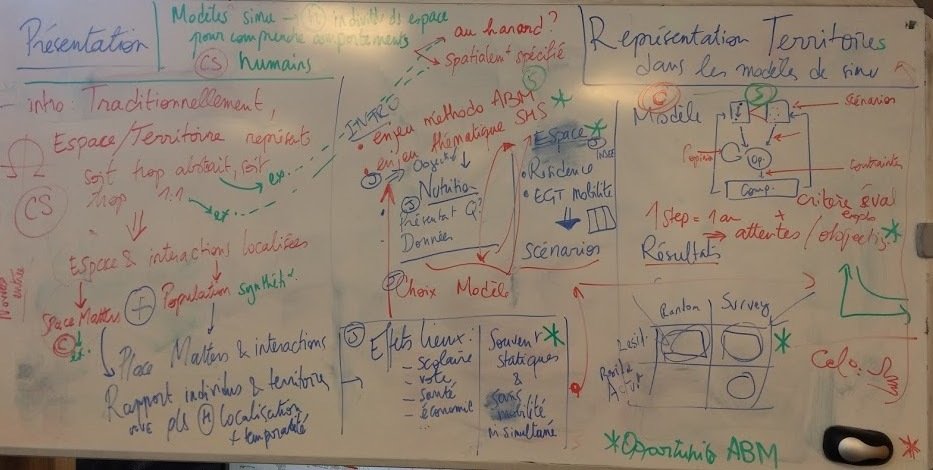 Présentation
Modèles simu
individus ds espace
pour comprendre comportements
CS humains
au hasard?
spatialemt spécifié
Représentation Territoires
dans les modèles de simu
- intro: Traditionnellement,
Espace/Territoire représentés
soit trop abstrait, soit
trop 1:1
→ ex.
→ ex.
CS
Espace & interactions localisées
Space Matters
+ Population synthétiq
Place Matters & interactions
Rapport individus & territoires
localisation
+ temporalité
INTRO
• enjeu méthodo ABM *
• enjeu thématique SHS
Objectif
Nutrition
Présentat Q?
Données
Choix Modèle
S
Espace *
INSEE
• Résidence
• EGT mobilité
Scénarios
Effets lieux:
- scolaire
- vote
- santé
- économie
Souvent *
statiques
&
sans
mobilité
ni simultané
Modèle
C
S
Scénarios
Op.
Contraintes
Comp.
1 step = 1 an
critère éval
⇒ attentes/objectifs *
Résultats
Random
Survey
Resid
Activit
*
Celo:
* Opportunités ABM
*